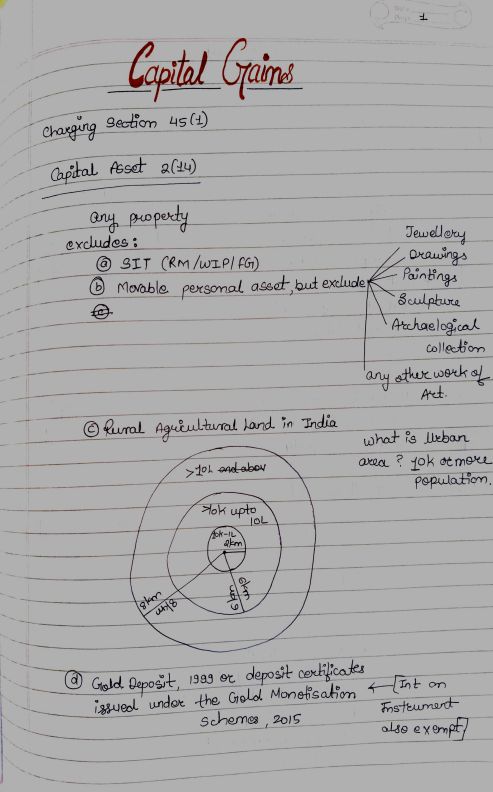 1
Capital Gains
Charging Section 45(1)
Capital Asset 2(14)
any property
excludes:
(a) SIT (RM/WIP/FG)
(b) Movable personal asset, but exclude
Jewellery
Drawings
Paintings
Sculpture
Archaelogical
collection
any other work of
Art.
(c) Rural Agricultural Land in India
what is Urban
area? 10k or more
population.
>10L and above
>10k upto
10L
10k-1L
2km
6km
8km
(d) Gold Deposit, 1999 or deposit certificates
issued under the Gold Monetisation
schemes, 2015
[Int on
Instrument
also exempt]